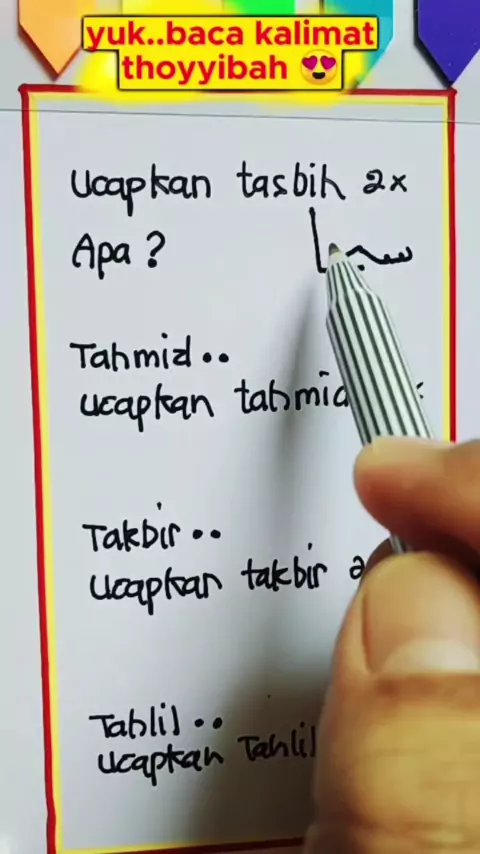 yuk..baca kalimat
thoyyibah 😍
Ucapkan tasbih 2x
Apa ?
Tahmid ..
ucapkan tahmid
Takbir ..
Ucapkan takbir 2
Tahlil ..
ucapkan Tahlil